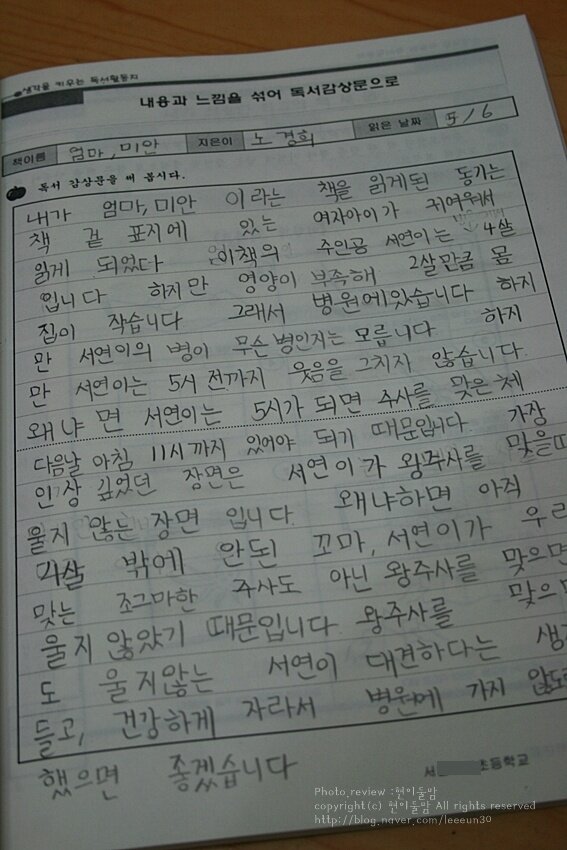 생각을 키우는 독서활동지
내용과 느낌을 섞어 독서감상문으로
책이름 엄마, 미안 지은이 노경희 읽은 날짜 5/6
독서 감상문을 써 봅시다.
내가 엄마, 미안 이라는 책을 읽게된 동기는
책 겉 표지에 있는 여자아이가 귀여워서
읽게 되었다 이책의 주인공 서연이는 4살
입니다 하지만 영양이 부족해 2살만큼 몸
집이 작습니다 그래서 병원에있습니다 하지
만 서연이의 병이 무슨 병인지는 모릅니다 하지
만 서연이는 5시 전까지 웃음을 그치지 않습니다.
왜냐 면 서연이는 5시가 되면 주사를 맞은 체
다음날 아침 11시까지 있어야 되기 때문입니다. 가장
인상 깊었던 장면은 서연이가 왕주사를 맞을때
울지 않는 장면 입니다. 왜냐하면 아직
4살 밖에 안된 꼬마, 서연이가 우리
맞는 조그마한 주사도 아닌 왕주사를 맞으면
울지 않았기 때문입니다 왕주사를 맞으면
도 울지않는 서연이 대견하다는 생
들고, 건강하게 자라서 병원에 가지 않도록
했으면 좋겠습니다
서 초등학교
Photo.review :현이둘맘
copyright(c) 현이둘맘 All rights reserved
http://blog.naver.com/leeeun30